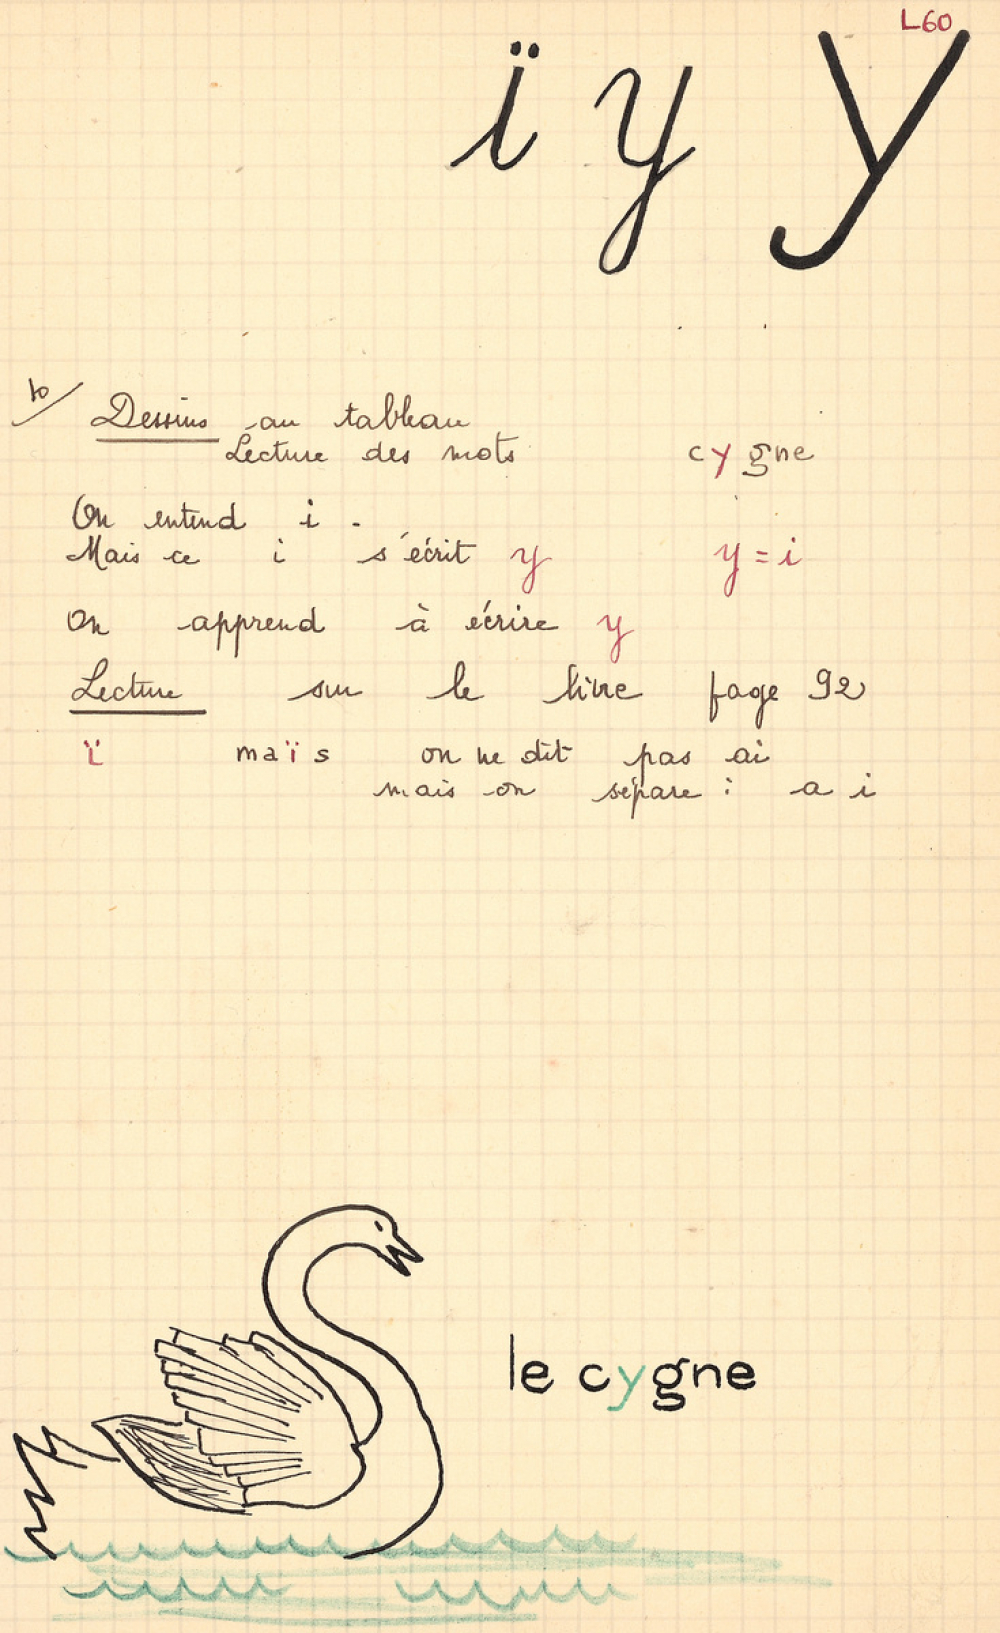 L60
ï y y
Dessins au tableau
Lecture des mots cygne
On entend i.
Mais ce i s'écrit y y = i
On apprend à écrire y
Lecture sur le livre page 92
ï maïs on ne dit pas ai
mais on sépare : a i
le cygne